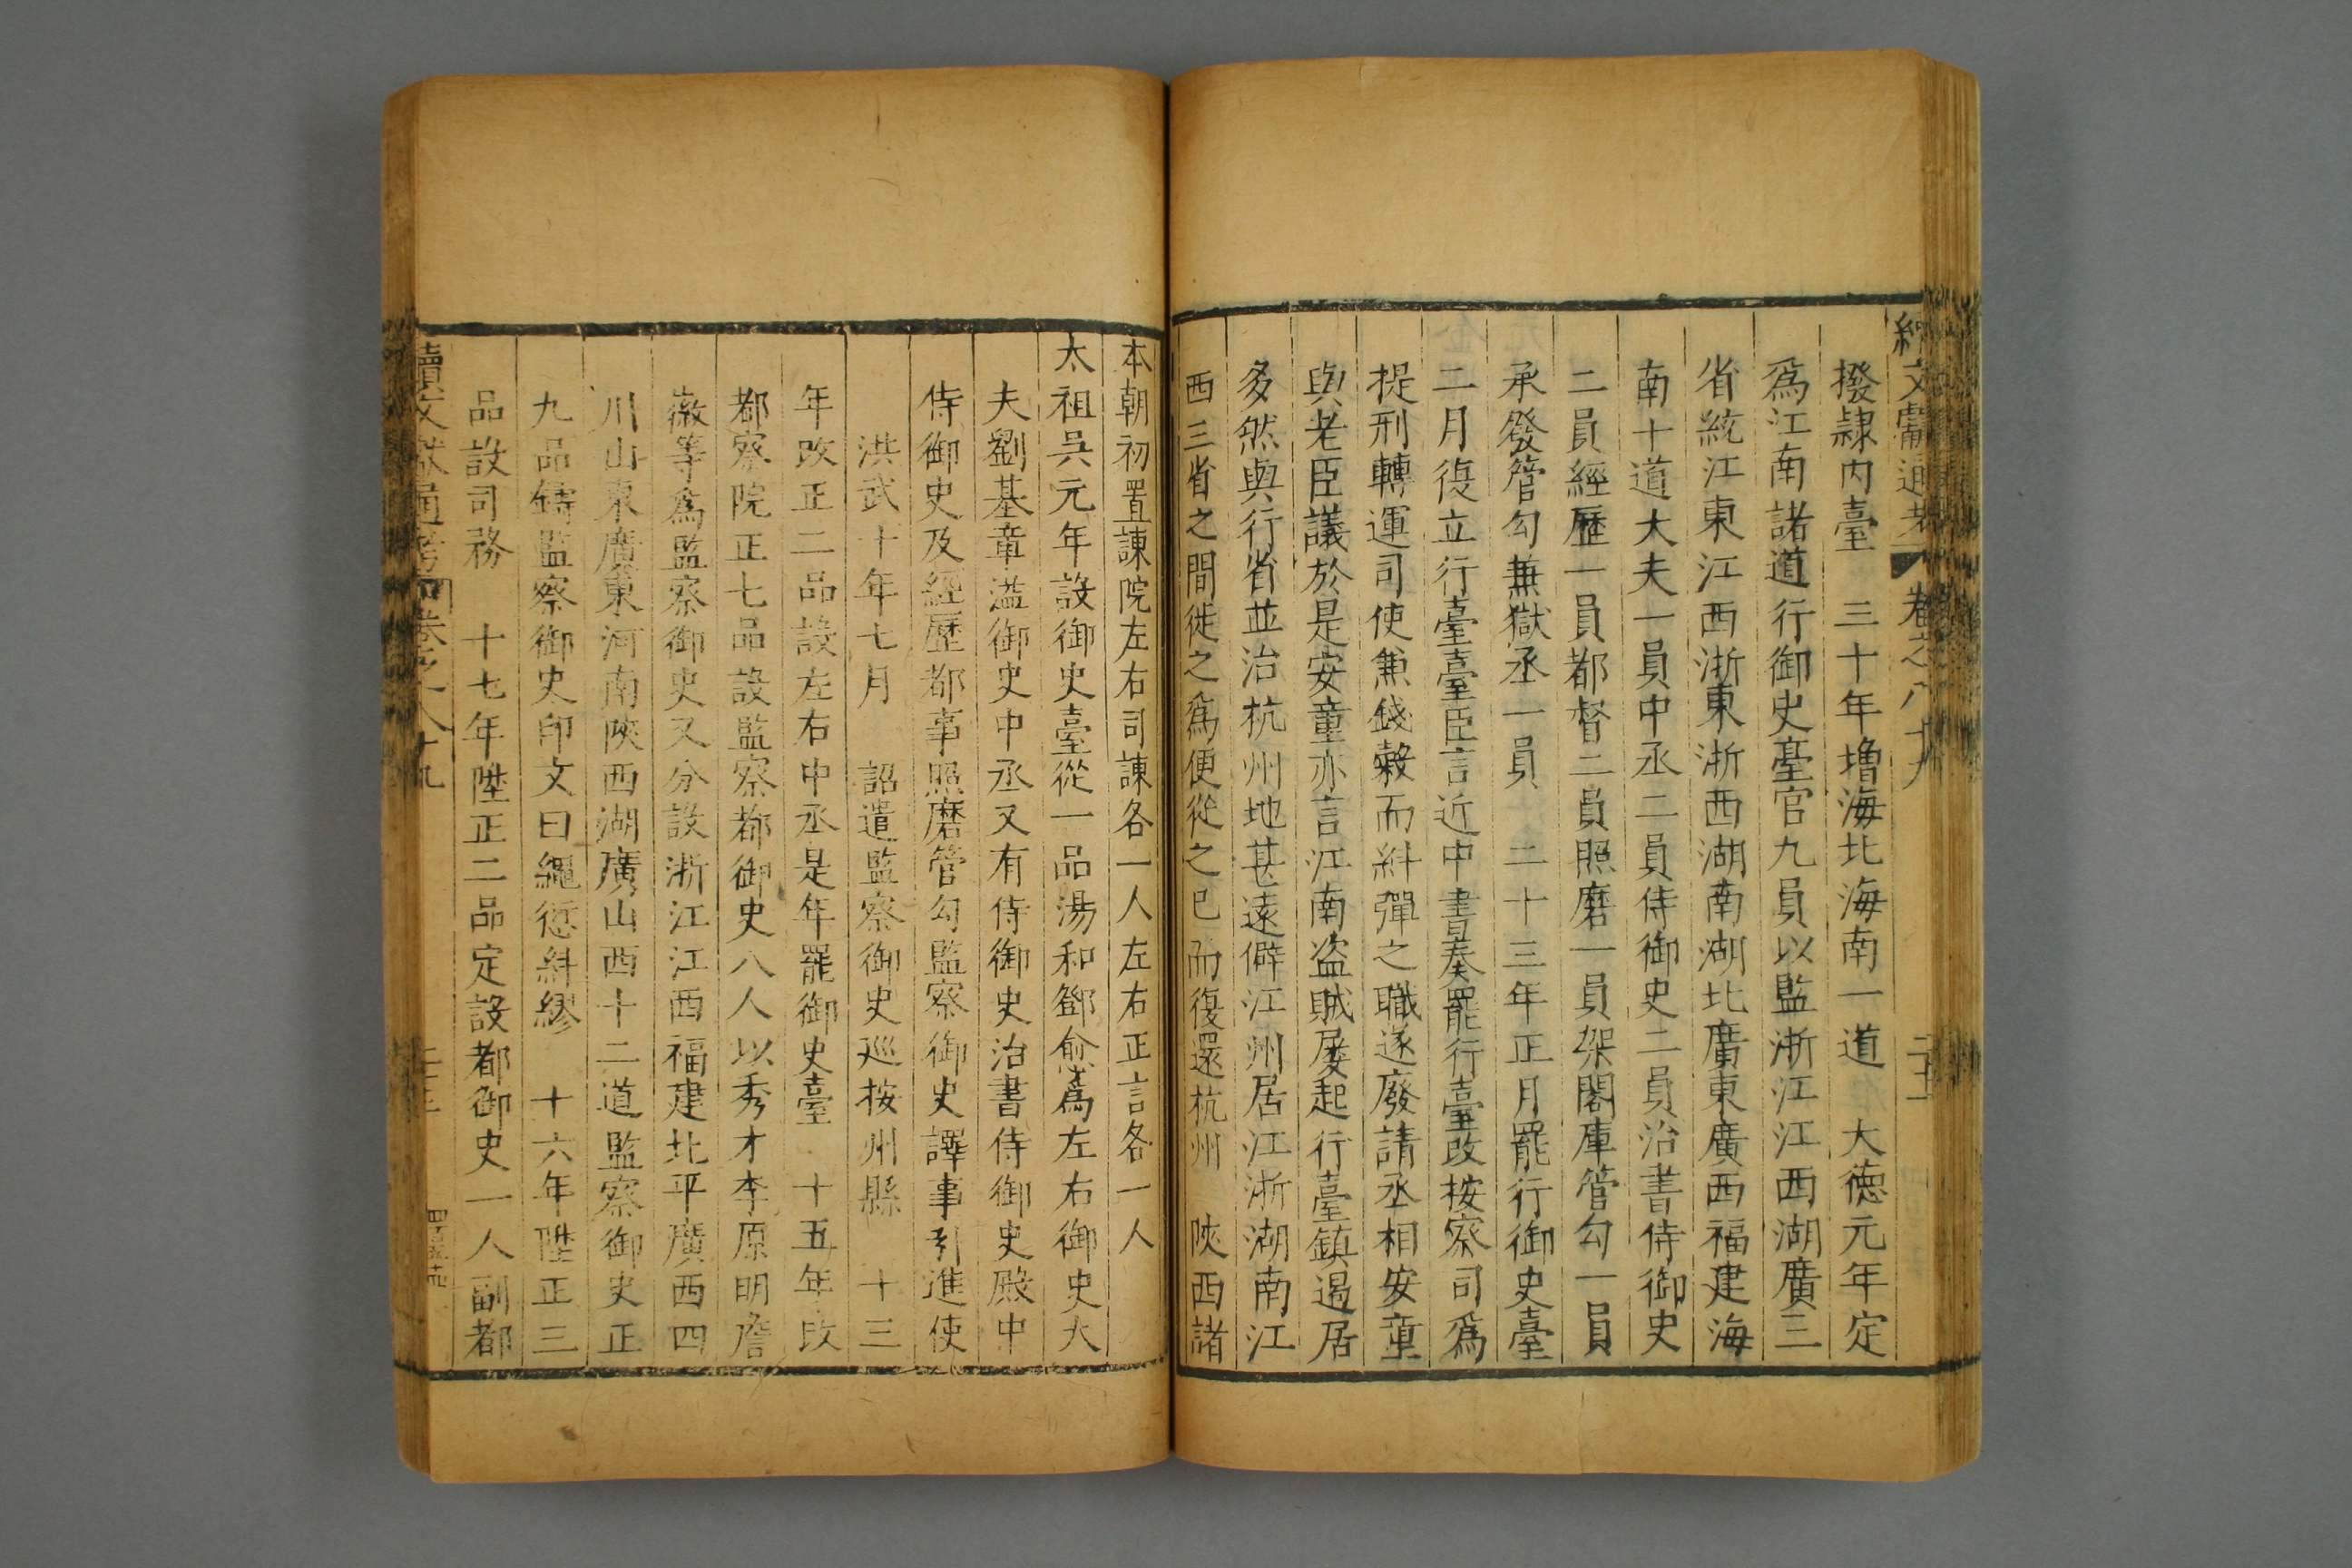 續文獻通考 卷之八十九
撥隷內臺　三十年增海北海南一道　大德元年定
爲江南諸道行御史臺官九員以監浙江江西湖廣三
省統江東江西浙東浙西湖南湖北廣東廣西福建海
南十道大夫一員中丞二員侍御史二員治書侍御史
二員經歷一員都督二員照磨一員架閣庫管勾一員
承發管勾兼獄丞一員　　二十三年正月罷行御史臺
二月復立行臺臺臣言近中書奏罷行臺改按察司爲
提刑轉運司使兼錢穀而糾彈之職遂廢請丞相安童
與老臣議於是安童亦言江南盗賊屡起行臺鎮遏居
多然與行省並治杭州地甚遠僻江州居江浙湖南江
西三省之間徙之爲便從之已而復還杭州　陝西諸
本朝初置諫院左右司諫各一人左右正言各一人
太祖吳元年設御史臺從一品湯和鄧愈爲左右御史大
夫劉基章溢御史中丞又有侍御史治書侍御史殿中
侍御史及經歷都事照磨管勾監察御史譯事引進使
洪武十年七月　詔遣監察御史巡按州縣　十三
年改正二品設左右中丞是年罷御史臺　十五年改
都察院正七品設監察都御史八人以秀才李原明詹
徽等爲監察御史又分設浙江江西福建北平廣西四
川山東廣東河南陝西湖廣山西十二道監察御史正
九品鑄監察御史印文曰繩愆糾繆　十六年陞正三
品設司務　十七年陞正二品定設都御史一人副都
續文獻通考 卷之八十九